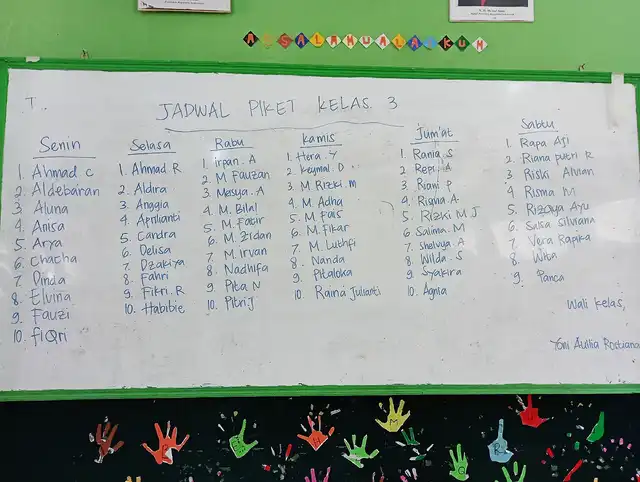 ASSALAMUALAIKUM
T..
JADWAL PIKET KELAS 3
Senin
1. Ahmad C
2. Aldebaran
3. Aluna
4. Anisa
5. Arya
6. Chacha
7. Dinda
8. Elvina
9. Fauzi
10. fiQri
Selasa
1. Ahmad R
2. Aldira
3. Anggia
4. Aprilianti
5. Candra
6. Delisa
7. Dzakiya
8. Fahri
9. Fikri. R
10. Habibie
Rabu
1. Irpan. A
2. M Fauzan
3. Mesya. A
4. M. Bilal
5. M. Fatir
6. M. Zidan
7. M. Irvan
8. Nadhifa
9. Pita N
10. Pitri J
Kamis
1. Hera. Y
2. Keymal. D
3. M Rizki. M
4. M. Adha
5. M Fais
6. M. Fikar
7. M. Luthfi
8. Nanda
9. Pitaloka
10. Raina Julianti
Jum'at
1. Rania S
2. Repi. A
3. Riani P
4. Risma. A
5. Rizki M J
6. Salima. M
7. Shelvya. A
8. Wilda. S
9. Syakira
10. Agnia
Sabtu
1. Rapa Aji
2. Riana putri R
3. Riski Alvian
4. Risma M
5. Rizqya Ayu
6. Salsa Silviana
7. Vera Rapika
8. Wiba
9. Panca
Wali kelas,
Yoni Aullia Rostiana